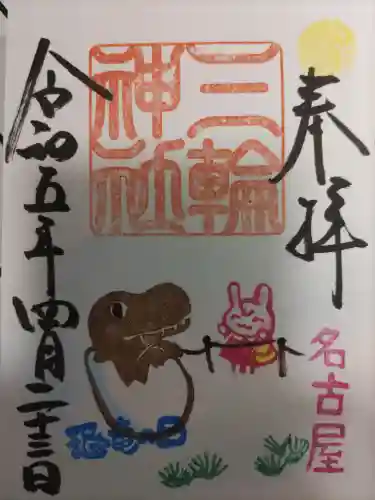 奉拝
三輪
神社
名古屋
令和五年四月二十三日
恐竜の日